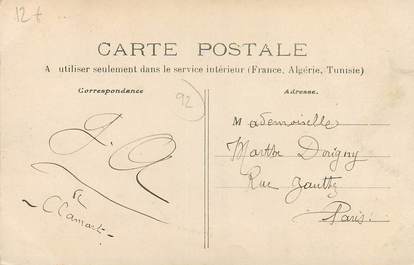 12 €
CARTE POSTALE
A utiliser seulement dans le service intérieur (France, Algérie, Tunisie)
Correspondance
Adresse.
92
Mademoiselle
Marthe Dorigny
Rue Gauthey
Paris.
Clamart